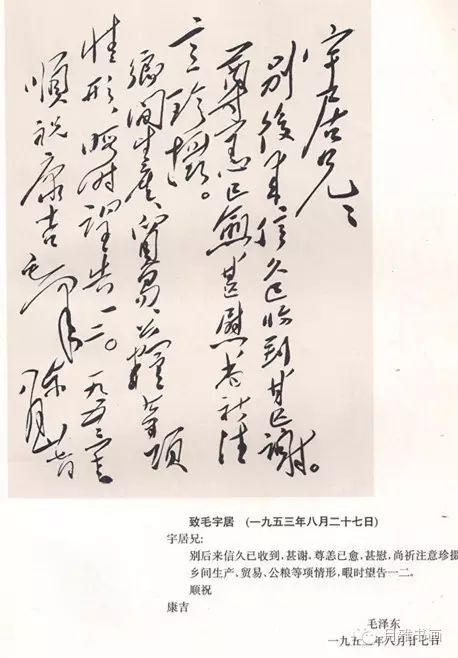 宇居兄：
别後来信久已收到甚謝。
尊恙已愈甚慰尚祈注
意珍攝。
鄉间生産、貿易、公糧等項
情形、暇時望告一二。
順祝康吉
毛澤東
一九五三年
八月廿七日
致毛宇居 (一九五三年八月二十七日)
宇居兄:
别后来信久已收到,甚谢。尊恙已愈,甚慰,尚祈注意珍摄
乡间生产、贸易、公粮等项情形,暇时望告一二。
顺祝
康吉
毛泽东
一九五三年八月廿七日
月雅书画